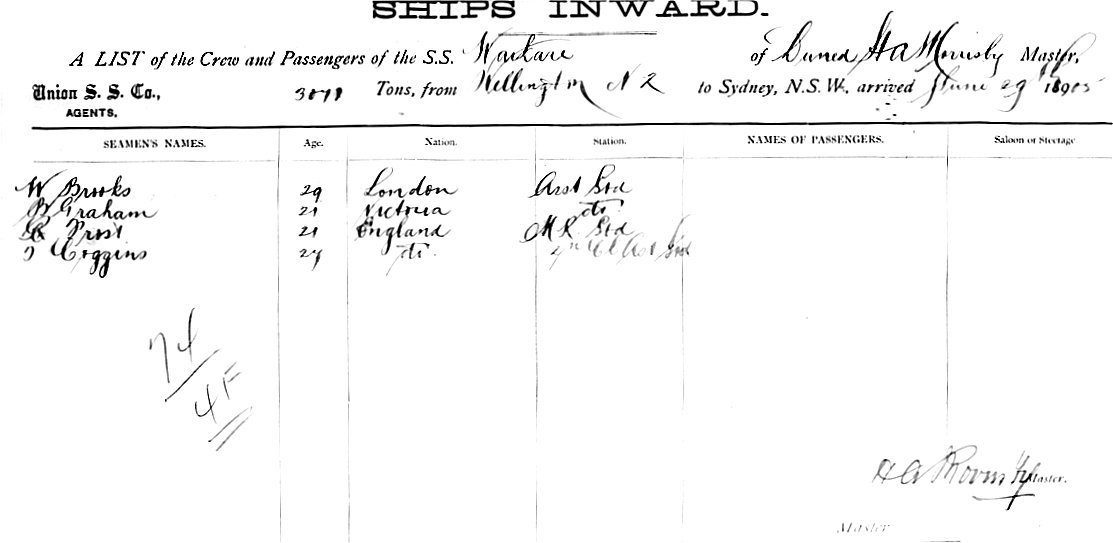 SHIPS INWARD.
A LIST of the Crew and Passengers of the S.S. of Duned H A Morrisby Master,
Union S. S. Co., Tons, from Wellington N Z to Sydney, N.S.W., arrived June 29th 1905
AGENTS.
SEAMEN'S NAMES. Age. Nation. Station. NAMES OF PASSENGERS. Saloon or Steerage
W Brooks 29 London Asst Std
B Graham 21 Victoria do
Prost 21 England M R Std
Coggins do Std
74
4F
H A Master.
Master